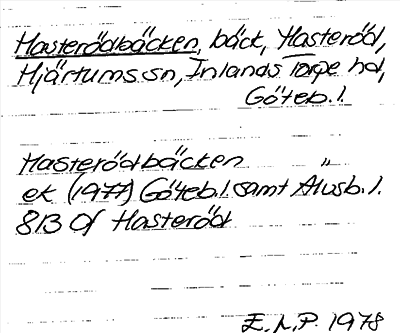 Hasterödbäcken, bäck, Hasteröd,
Hjärtums sn, Inlands Torpe hd,
Göteb. l.
Hasterödbäcken "
ek (1977) Göteb. l. samt Älvsb. l.
8B 0f Hasteröd
E.N.P. 1978